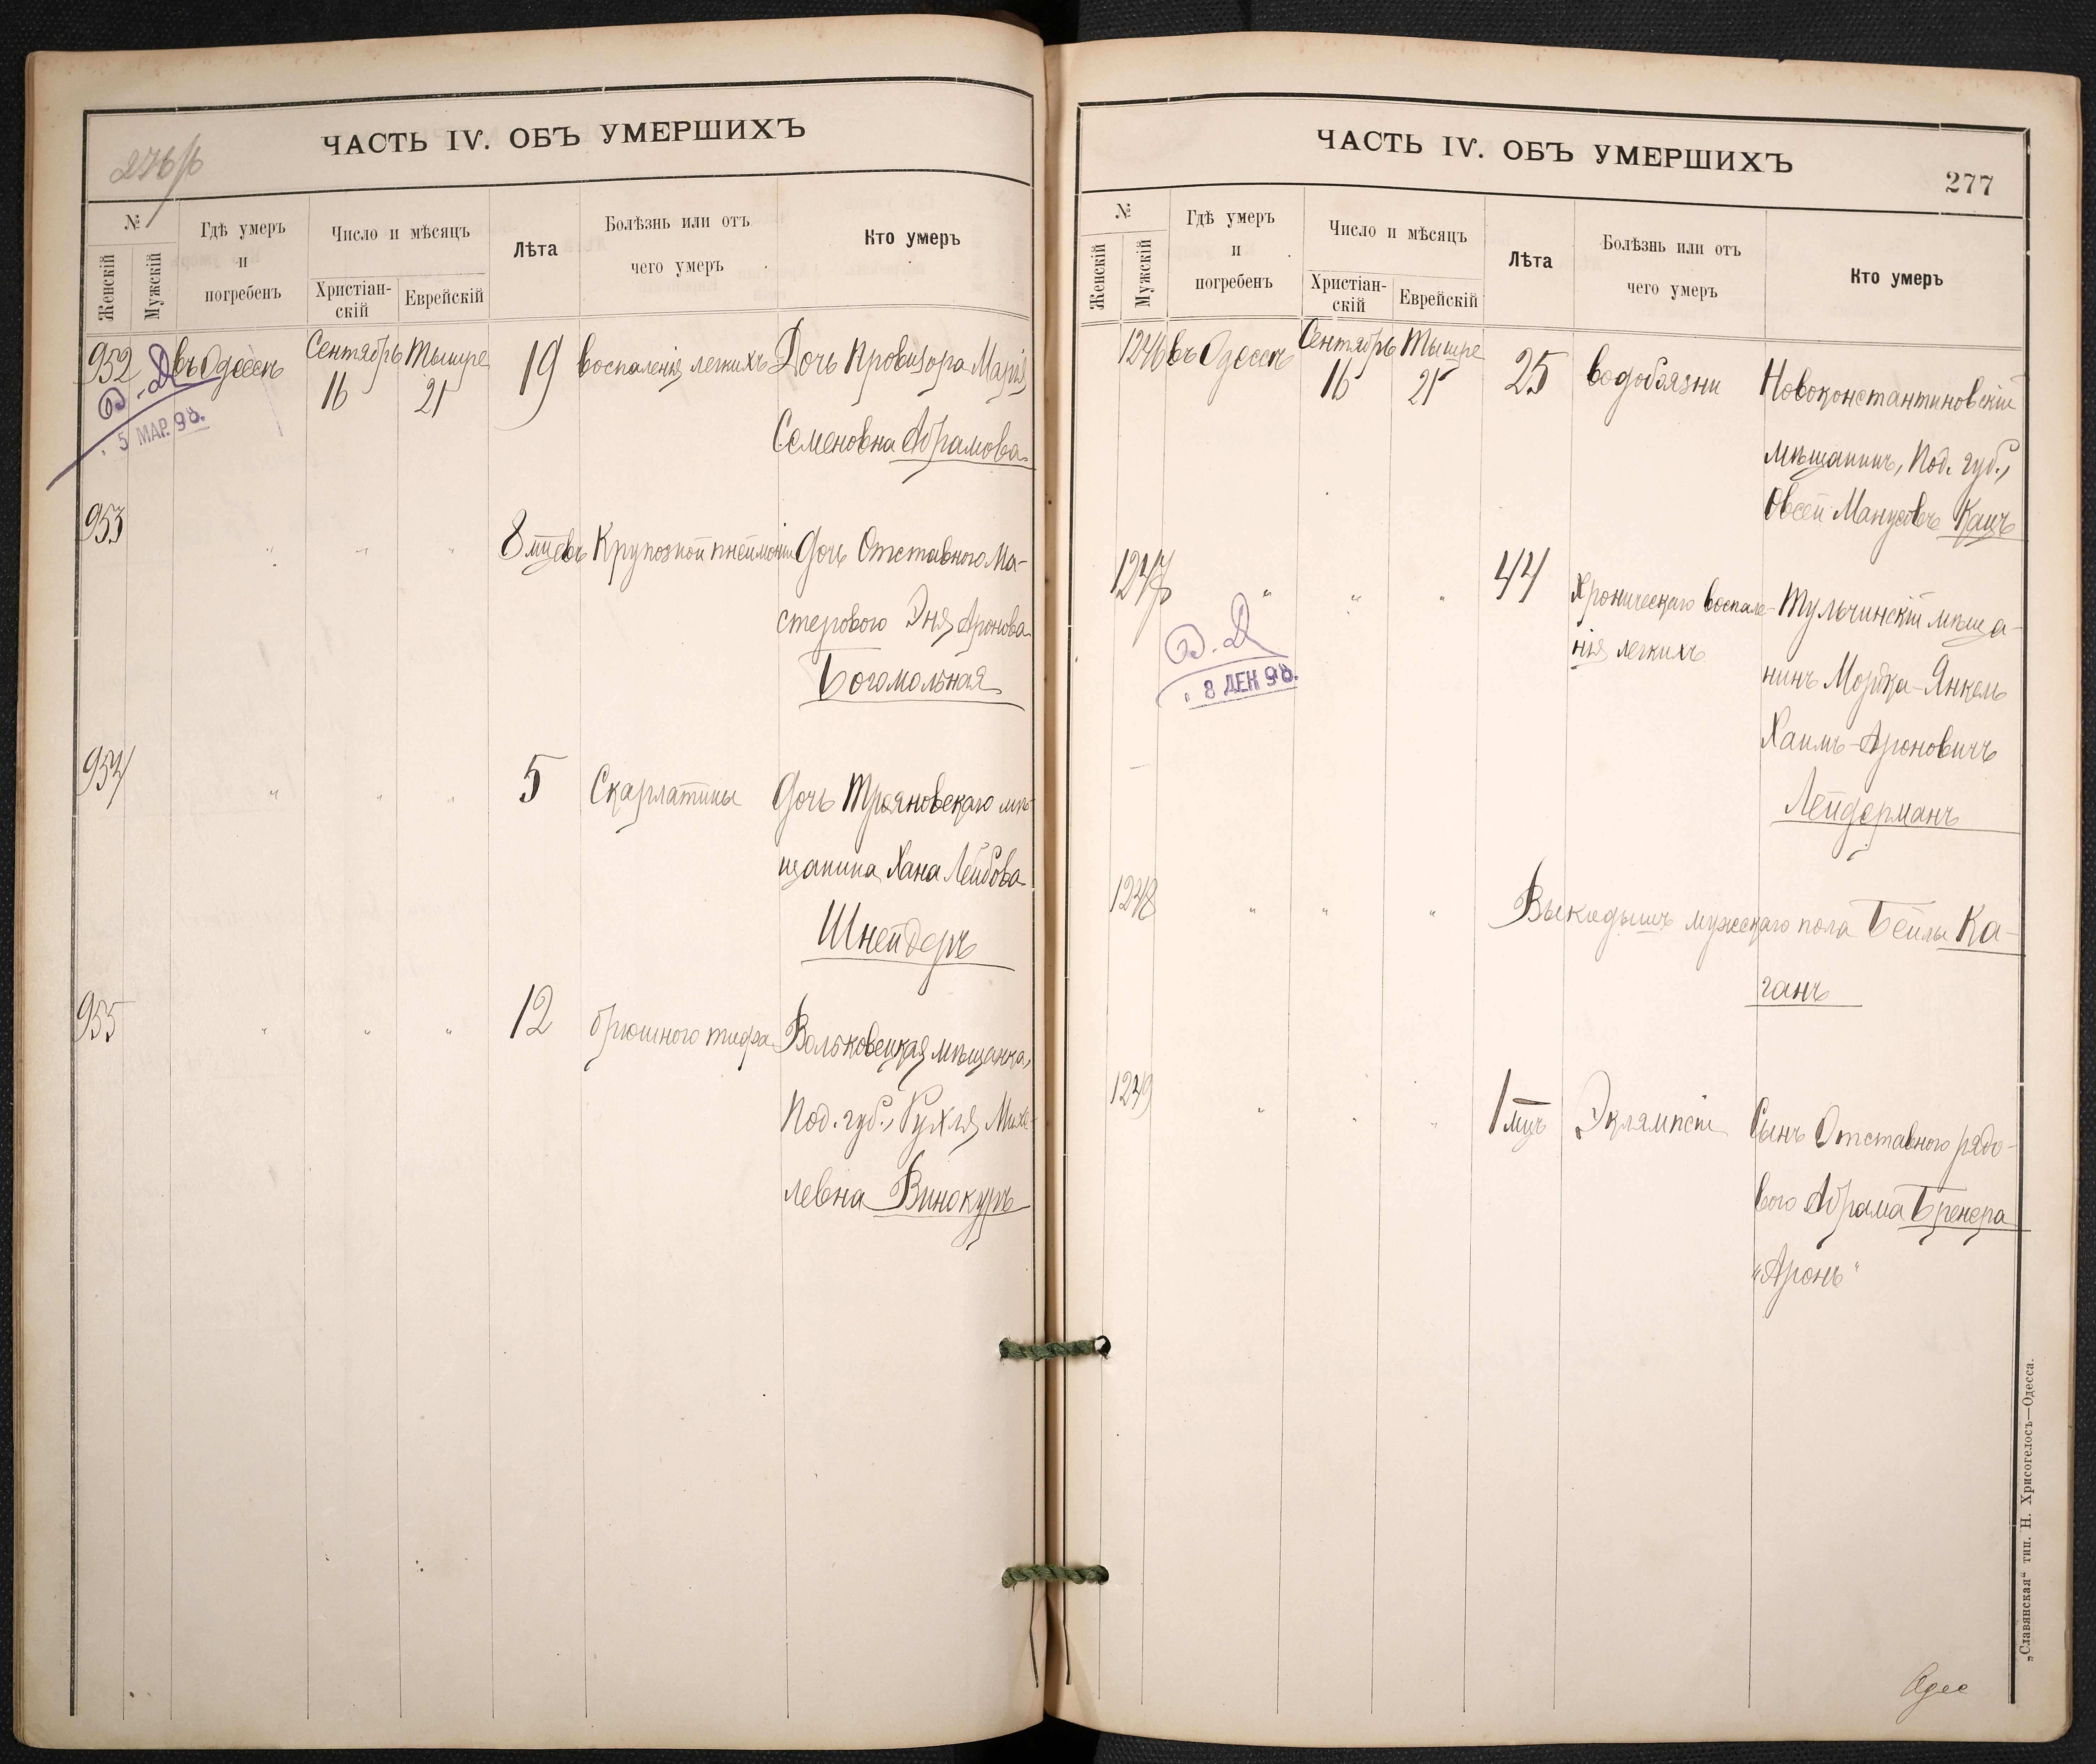 276/б
ЧАСТЬ IV. ОБЪ УМЕРШИХЪ
№
Женскій
Мужскій
Гдѣ умеръ
и
погребенъ
Число и мѣсяцъ
Христіан-
скій
Еврейскій
Лѣта
Болѣзнь или отъ
чего умеръ
Кто умеръ
952 въ Одессѣ Сентябрь 16 Тишре 21 19 воспаленія легкихъ Дочь Провизора Марія
Семеновна Абрамова
5 МАР. 98.
953 " " " 8 мцевъ Крупозной пнеймоніи Дочь Отставного Ма-
стерового Эня Аронова
Богомольная
954 " " " 5 Скарлатины Дочь Трояновскаго мѣ-
щанина Хана Лейбова
Шнейдеръ
955 " " " 12 брюшного тифа Вольковецкая мѣщанка,
Под. губ., Рухля Михе-
левна Винокуръ
ЧАСТЬ IV. ОБЪ УМЕРШИХЪ
277
№
Женскій
Мужскій
Гдѣ умеръ
и
погребенъ
Число и мѣсяцъ
Христіан-
скій
Еврейскій
Лѣта
Болѣзнь или отъ
чего умеръ
Кто умеръ
1246 въ Одессѣ Сентябрь 16 Тишре 21 25 водобоязни Новоконстантиновскій
мѣщанинъ, Под. губ.,
Овсей Манусовъ Кацъ
1247 " " " 44 Хроническаго воспале- Тульчинскій мѣща-
нія легкихъ
нинъ Мордка-Янкель
Хаимъ-Ароновичъ
Лейдерманъ
8 ДЕК 98.
1248 " " " Выкидышъ мужескаго пола Бейлы Ка-
ганъ
1249 " " " 1 мцъ Эклямпсіи Сынъ Отставного рядо-
вого Абрама Бренера
"Аронъ"
Одес
„Славянская“ тип. Н. Хрисогелосъ—Одесса.